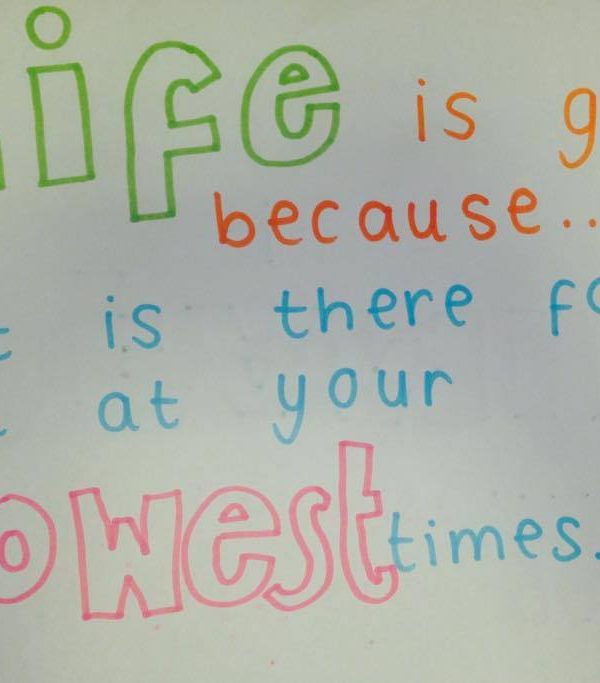 life is g
because..
t is there fo
at your
owest times.